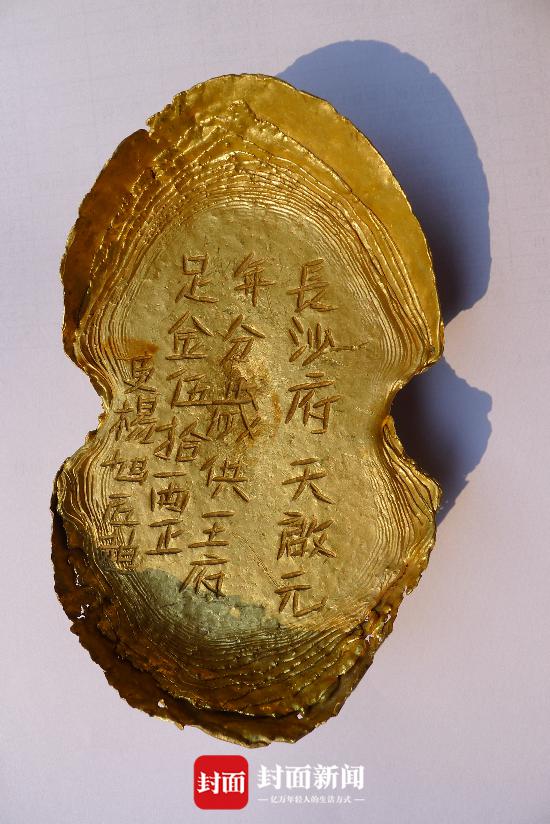 長沙府天啟元
年分歲供王府
足金伍拾兩正
吏楊旭匠
封面
封面新闻
亿万年轻人的生活方式